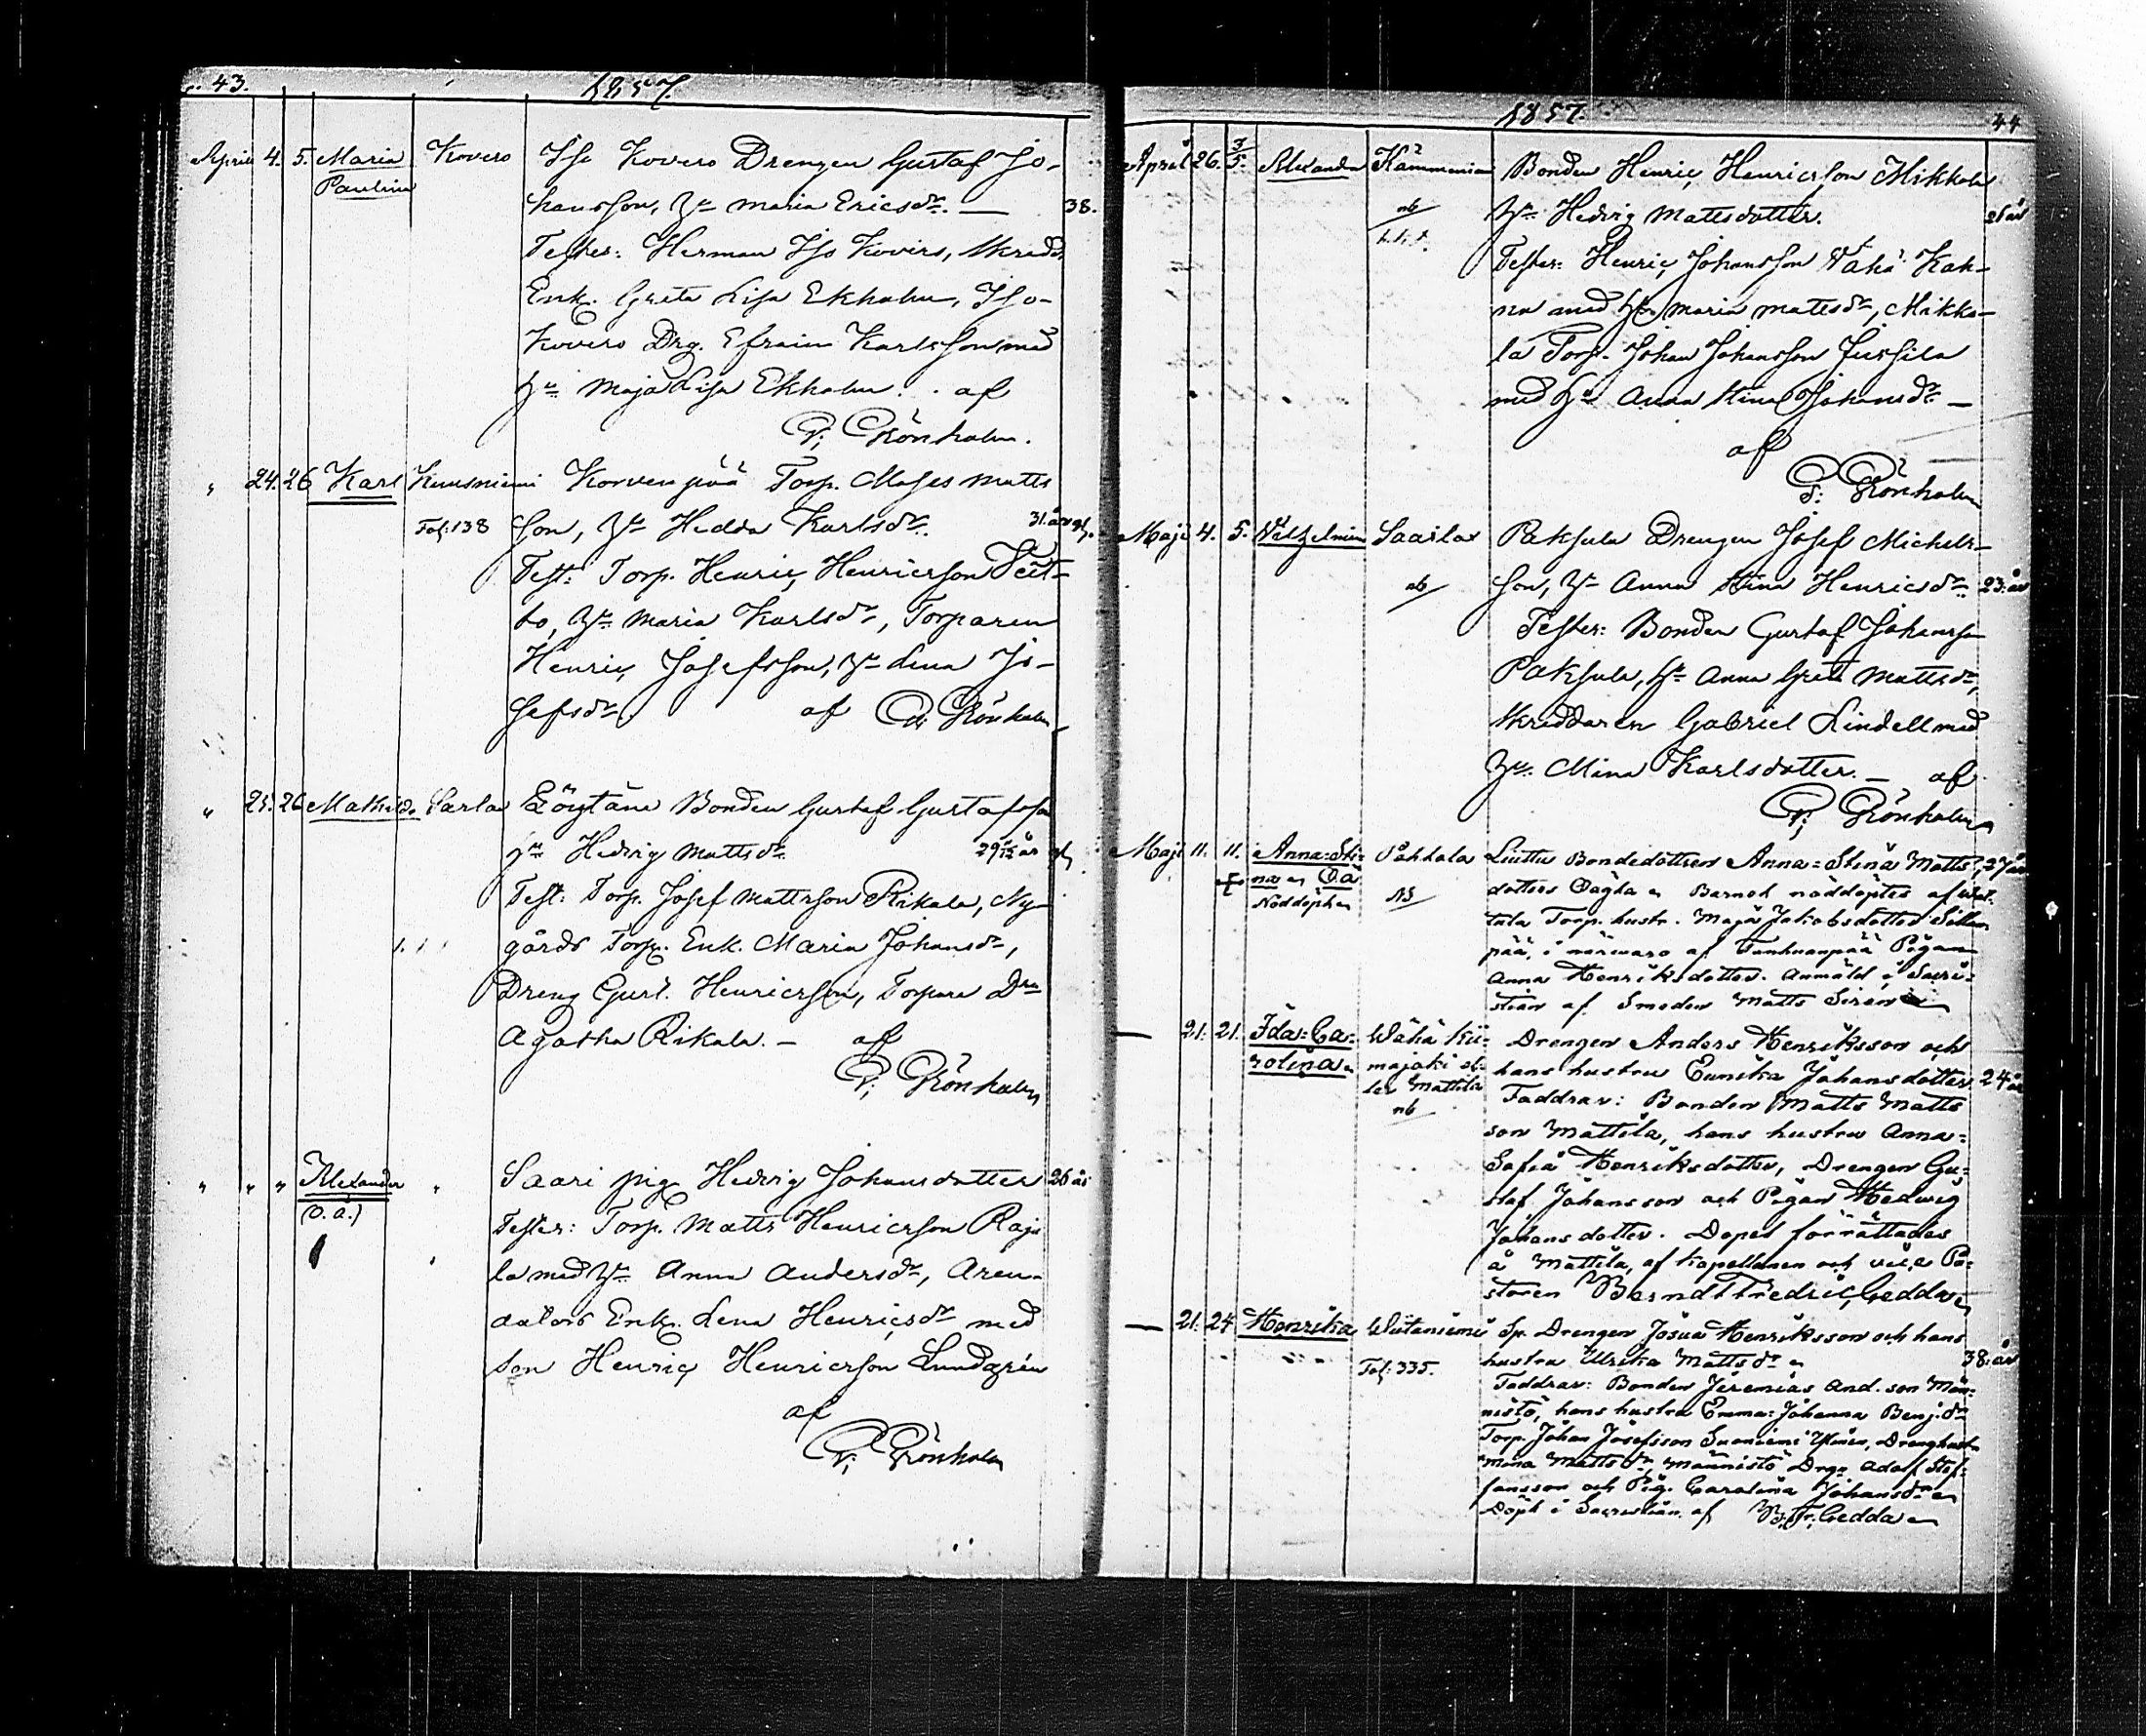 43.
1857.
April 4. 5. Maria Kovero Iso Kovero Drengen Gustaf Jo-
Paulina hansson, H:u Maria Ericsdr. — 38.
Testes: Herman Iso Kovero, Skredd.
Enk. Greta Lisa Ekholm, Iso-
Kovero Drg. Efraim Karlsson med
H:u Maja Lisa Ekholm. af
P: Grönholm.
" 24. 26 Karl Kuusniemi Korvenpää Torp. Moses Matts
Fol: 138 son, H:u Hedda Karlsdr. 31. år
Test: Torp. Henric Henricsson
H:u Maria Karlsdr, Torparen
Henric Josefsson, H:u Lena Jo-
sefsdr. af P: Grönholm
" 25. 26 Mathilda Sarla Bonden Gustaf Gustafsson
H:u Hedvig Mattsdr. 29
Test: Torp. Josef Mattsson Rikala, Ny-
gårds Torp. Enk. Maria Johansdr,
Dreng Gust. Henricsson, Torpare Drn
Agatha Rikala. — af
P: Grönholm
" " " Alexander " Saari pig. Hedvig Johansdotter 26 år
(O. ä.) Testes: Torp. Matts Henricsson Raju
la med H:u Anna Andersdr, Aren-
dators Enk. Lena Henricsdr med
son Henric Henricsson Lundgrén
af
P: Grönholm
1857.
44
April 26. 3/5. Alexandra Bonden Henric Henricsson Mikkola
nb H:u Hedvig Mattsdotter. år
Testes: Henric Johansson Vähä Kah-
na med H:u Maria Mattsdr, Mikko-
la Torp. Johan Johansson Jussila
med H:u Anna Stina Johansdr —
af
P: Grönholm
Maji 4. 5. Saarlax Paksula Drengen Josef Michels-
nb son, H:u Anna Stina Henricsdr. 23. år
Testes: Bonden Gustaf Johansson
Paksula, H:u Anna Greta Mattsdr,
Skreddaren Gabriel Lindell med
H:u Mina Karlsdotter. — af
P: Grönholm
Maji 11. 11. Anna-Sti- Påhkala Liuttu Bondedottren Anna-Stina Matts- 27 år
na OÄ dotters Oägta Barnet nöddöptes af
Nöddöpt Torp. hustr. Maja Jakobsdotter
pää, i närwaro af Pigan
Anna Henriksdotter. Anmäld i Sacri-
stian af Smeden Matts Siren
— 21. 21. Ida-Ca- Wähä Kii- Drengen Anders Henriksson och
rolina majoki el- hans hustru Eunika Johansdotter 24 år
ler Mattila Faddrar: Bonden Matts Matts
nb son Mattila, hans hustru Anna-
Sofia Henriksdotter, Drengen Gu-
staf Johansson och Pigan Hedwig
Johansdotter. Dopet förrättades
å Mattila, af Kapellanen och vice Pa-
storen Berndt Fredric Gedda
— 21. 24 Henrika Sp. Drengen Josua Henriksson och hans
Fol: 335. hustru Ulrika Mattsdr 38. år
Faddrar: Bonden Jeremias And. son Män-
nistö, hans hustru Emma-Johanna Benj.dr
Torp. Johan Josefsson Suoniemi Drenghustr.
Mina Mattsdr, Männistö Drg. Adolf Stef-
fansson och Pig. Carolina Johansdr
Döpt i Sacristian af B. Fr. Gedda